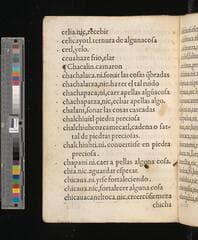 celia.nic, recebir
celtic ayotl. ternura de alguna cosa
cetl, yelo.
ceuahaze frio, elar
Chacalin. camaron
chachalaca. ni. sonar las cosas qbradas
chachalatza. nic. hazer el tal ruido
chachapaca. ni, caer apellas algũ suzio
chachapatza. nic, echar apellas algo.
chalani, sonar las cosas cascadas
chalchiuitl piedra preciosa
chalchiuhcozcameca tl, cadena o sartal
tal de piedras preciosas.
chalchiuhti. ni. conuertirse en piedra
preciosa.
chapani. ni. caer a pellas alguna cosa.
chia. nic. aguardar esperar
chicaua. ni. yrse fortaleciendo.
chicaua. nic, fortalecer alguna cosa
chicauacaneltoca. nic, creer cosa mera
chicha